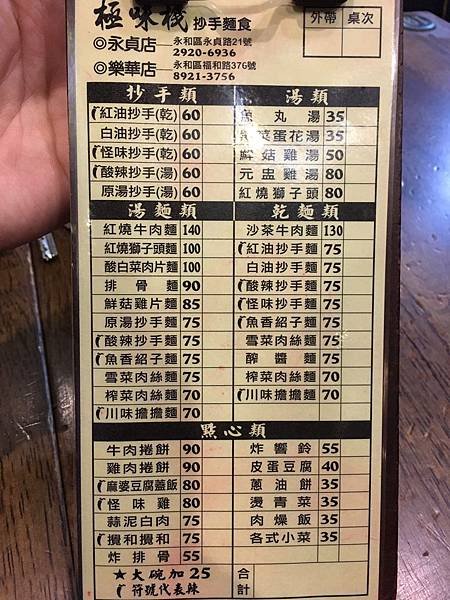 極味棧 抄手麵食
外帶 桌次
◎永貞店 永和區永貞路21號
2920-6936
◎樂華店 永和區福和路376號
8921-3756
抄手類
紅油抄手(乾) 60
白油抄手(乾) 60
怪味抄手(乾) 60
酸辣抄手(湯) 60
原湯抄手(湯) 60
湯類
魚丸湯 35
紫菜蛋花湯 35
鮮菇雞湯 50
元盅雞湯 80
紅燒獅子頭 80
湯麵類
紅燒牛肉麵 140
紅燒獅子頭麵 100
酸白菜肉片麵 100
排骨麵 90
鮮菇雞片麵 85
原湯抄手麵 75
酸辣抄手麵 75
魚香紹子麵 75
雪菜肉絲麵 75
榨菜肉絲麵 70
川味擔擔麵 70
乾麵類
沙茶牛肉麵 130
紅油抄手麵 75
白油抄手麵 75
酸辣抄手麵 75
怪味抄手麵 75
魚香紹子麵 75
雪菜肉絲麵 75
醡醬麵 75
榨菜肉絲麵 70
川味擔擔麵 70
點心類
牛肉捲餅 90
雞肉捲餅 90
麻婆豆腐蓋飯 80
怪味雞 80
蒜泥白肉 75
攪和攪和 75
炸排骨 55
炸響鈴 55
皮蛋豆腐 40
蔥油餅 35
燙青菜 35
肉燥飯 35
各式小菜 35
★大碗加25
符號代表辣
合計